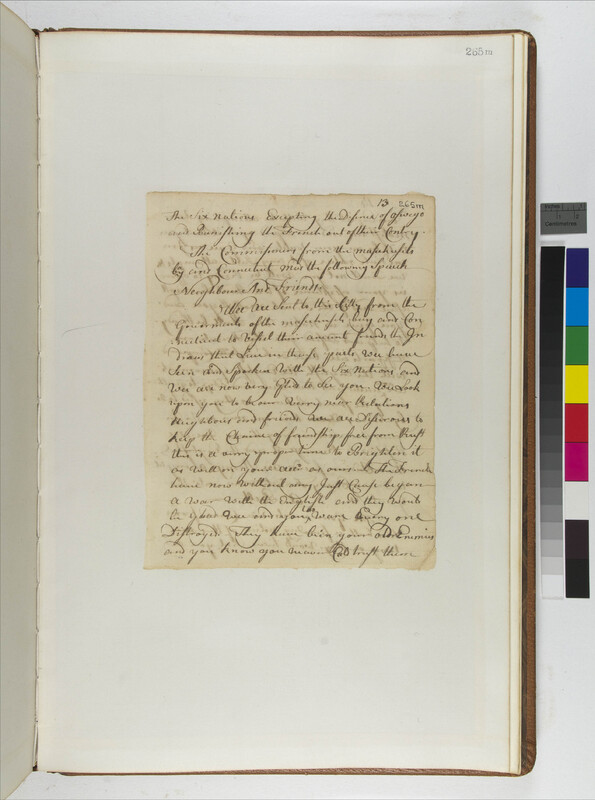 265m
13 265m
The Six Nations Excepting the Difince of oswego
and Punishing the French out of their Contry.
The Commisiners from the Masachusets
bay and Connecticut mad the following Speech
Neighbours And Friends
Wee are Sent to this Citty from the
Goverments of the Masachusets bay and Con
necticut to Visset their ancient frinds the In
dians that Live in these parts we have
Seen and Spoken With the Six Nations and
Wee are now very Glad to See you. Wee Look
upon you to be our Verry near Relations
Neighbours and friends wee are Disirous to
Keep the Chaine of friendship free from Rust
this is a very proper time to Brighten it
as well on your as on ours. The French
have now Without any Just Cause began
A war With the English and they Would
be glad Wee and you Ware Every one
Distroyed. They have bien your old Enimies
and you know you never Cod trust them